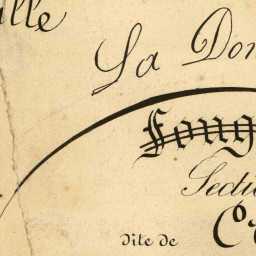 ille
La Don
Foug
Secti
dite de